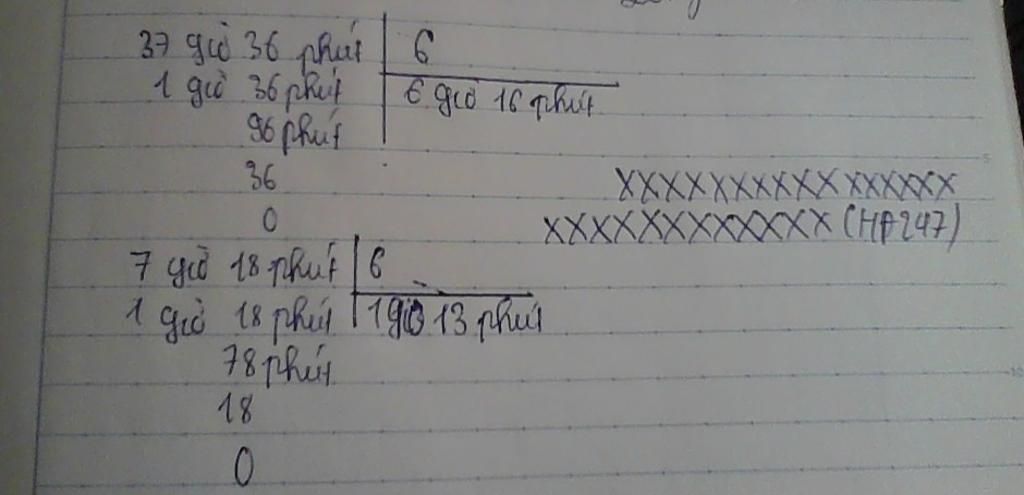 37 giờ 36 phút | 6
1 giờ 36 phút | 6 giờ 16 phút
96 phút
36 XXXXXXXXXXXXXXX
0 XXXXXXXXXXXXX (HP247)
7 giờ 18 phút | 6
1 giờ 18 phút | 1 giờ 13 phút
78 phút
18
0